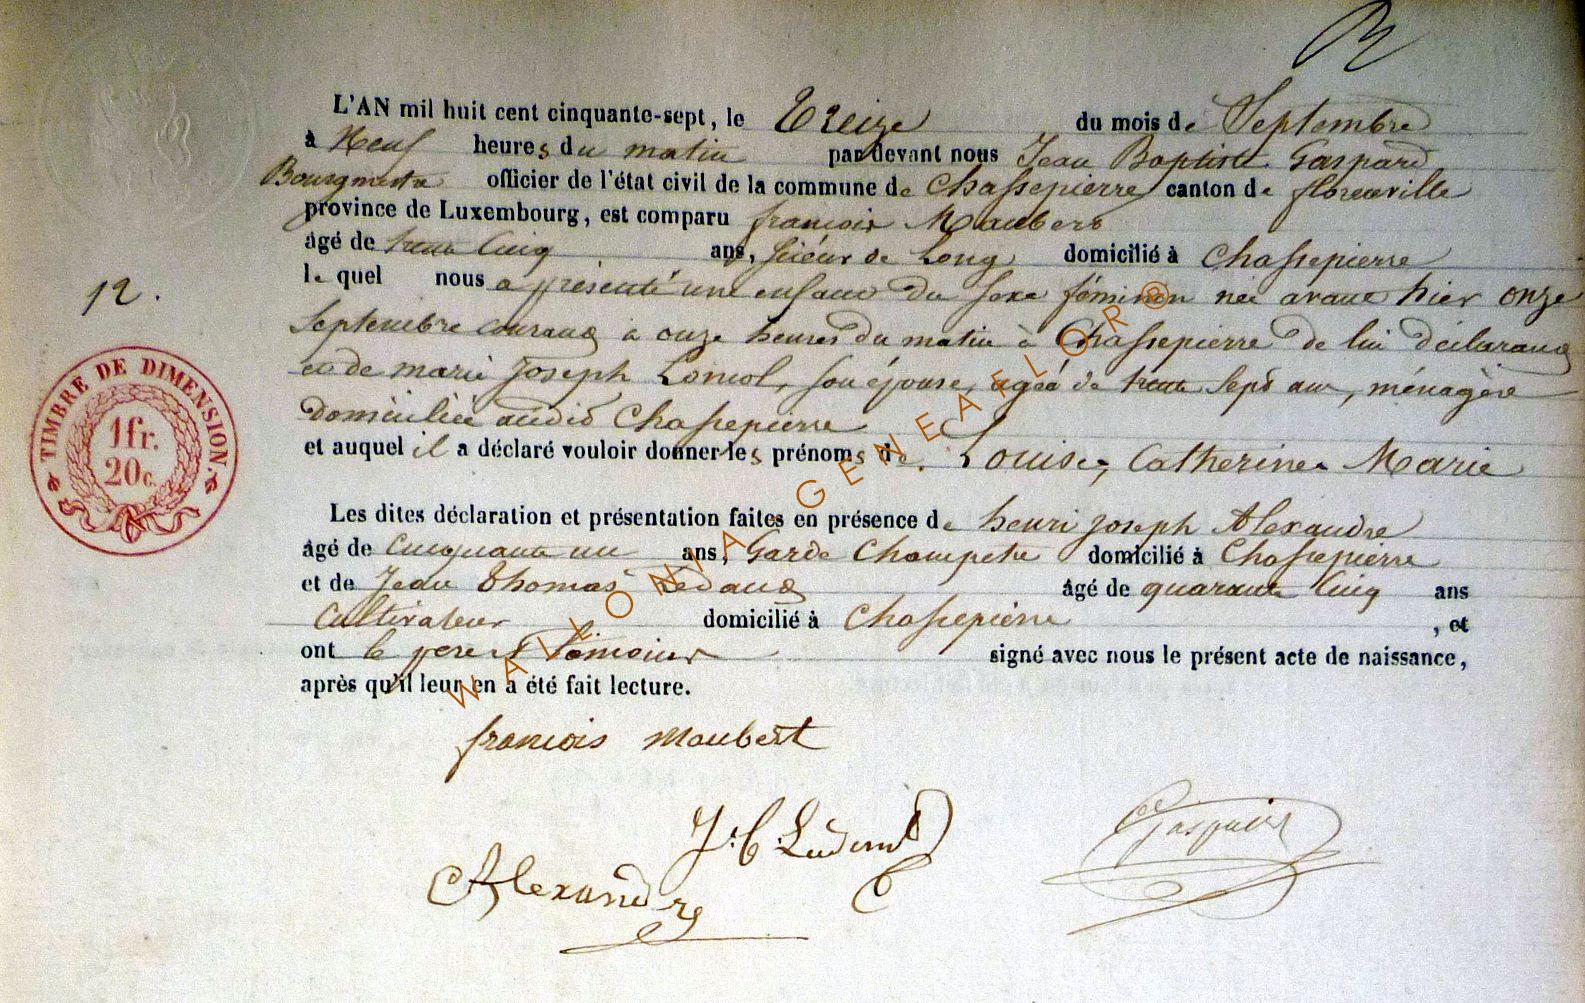 L'AN mil huit cent cinquante-sept, le Treize du mois de Septembre
à Neuf heures du matin par devant nous Jean Baptiste Gaspard
Bourgmestre officier de l'état civil de la commune de Chassepierre canton de florenville
province de Luxembourg, est comparu françois Maubert
âgé de trente Cinq ans, scieur de Long domicilié à Chassepierre
le quel nous a présenté une enfant du sexe féminin née avant hier onze
12.
Septembre courant à onze heures du matin à Chassepierre de lui déclarant
et de marie Joseph son épouse, agée de trente sept ans, ménagère
Domiciliée audit Chassepierre
et auquel il a déclaré vouloir donner les prénoms de Louise, Catherine Marie
TIMBRE DE DIMENSION.
1fr.
20c.
Les dites déclaration et présentation faites en présence de henri joseph Alexandre
âgé de Cinquante un ans, Garde Champetre domicilié à Chassepierre
et de Jean Thomas âgé de quarante Cinq ans
Cultivateur domicilié à Chassepierre , et
ont le pere et témoins signé avec nous le présent acte de naissance,
après qu'il leur en a été fait lecture.
WALLONIA GENEAFLOR®
françois Maubert
Alexandre